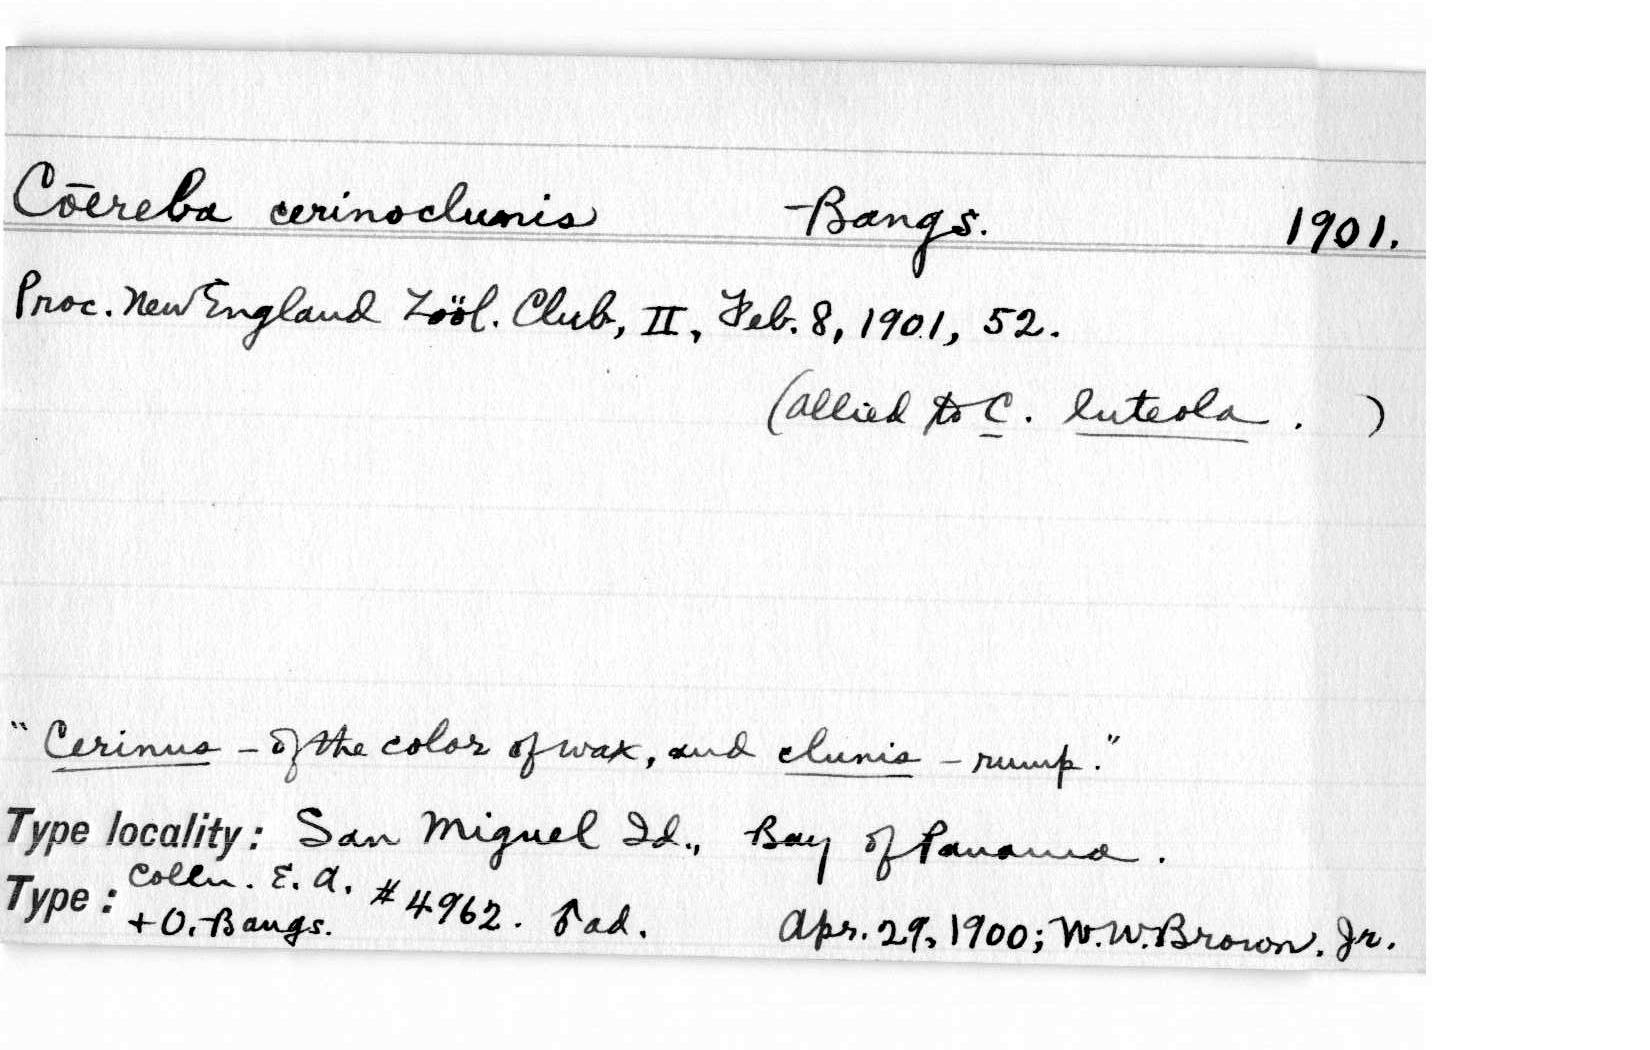 Cōereba cerinoclunis Bangs. 1901.
Proc. New England Zoöl. Club, II, Feb. 8, 1901, 52.
(allied to C. luteola. )
"Cerinus - of the color of wax, and clunis - rump."
Type locality: San Miguel Id., Bay of Panama.
Type: Colln. E. A. + O. Bangs. #4962. ♂ ad. Apr. 29, 1900; W. W. Brown, Jr.